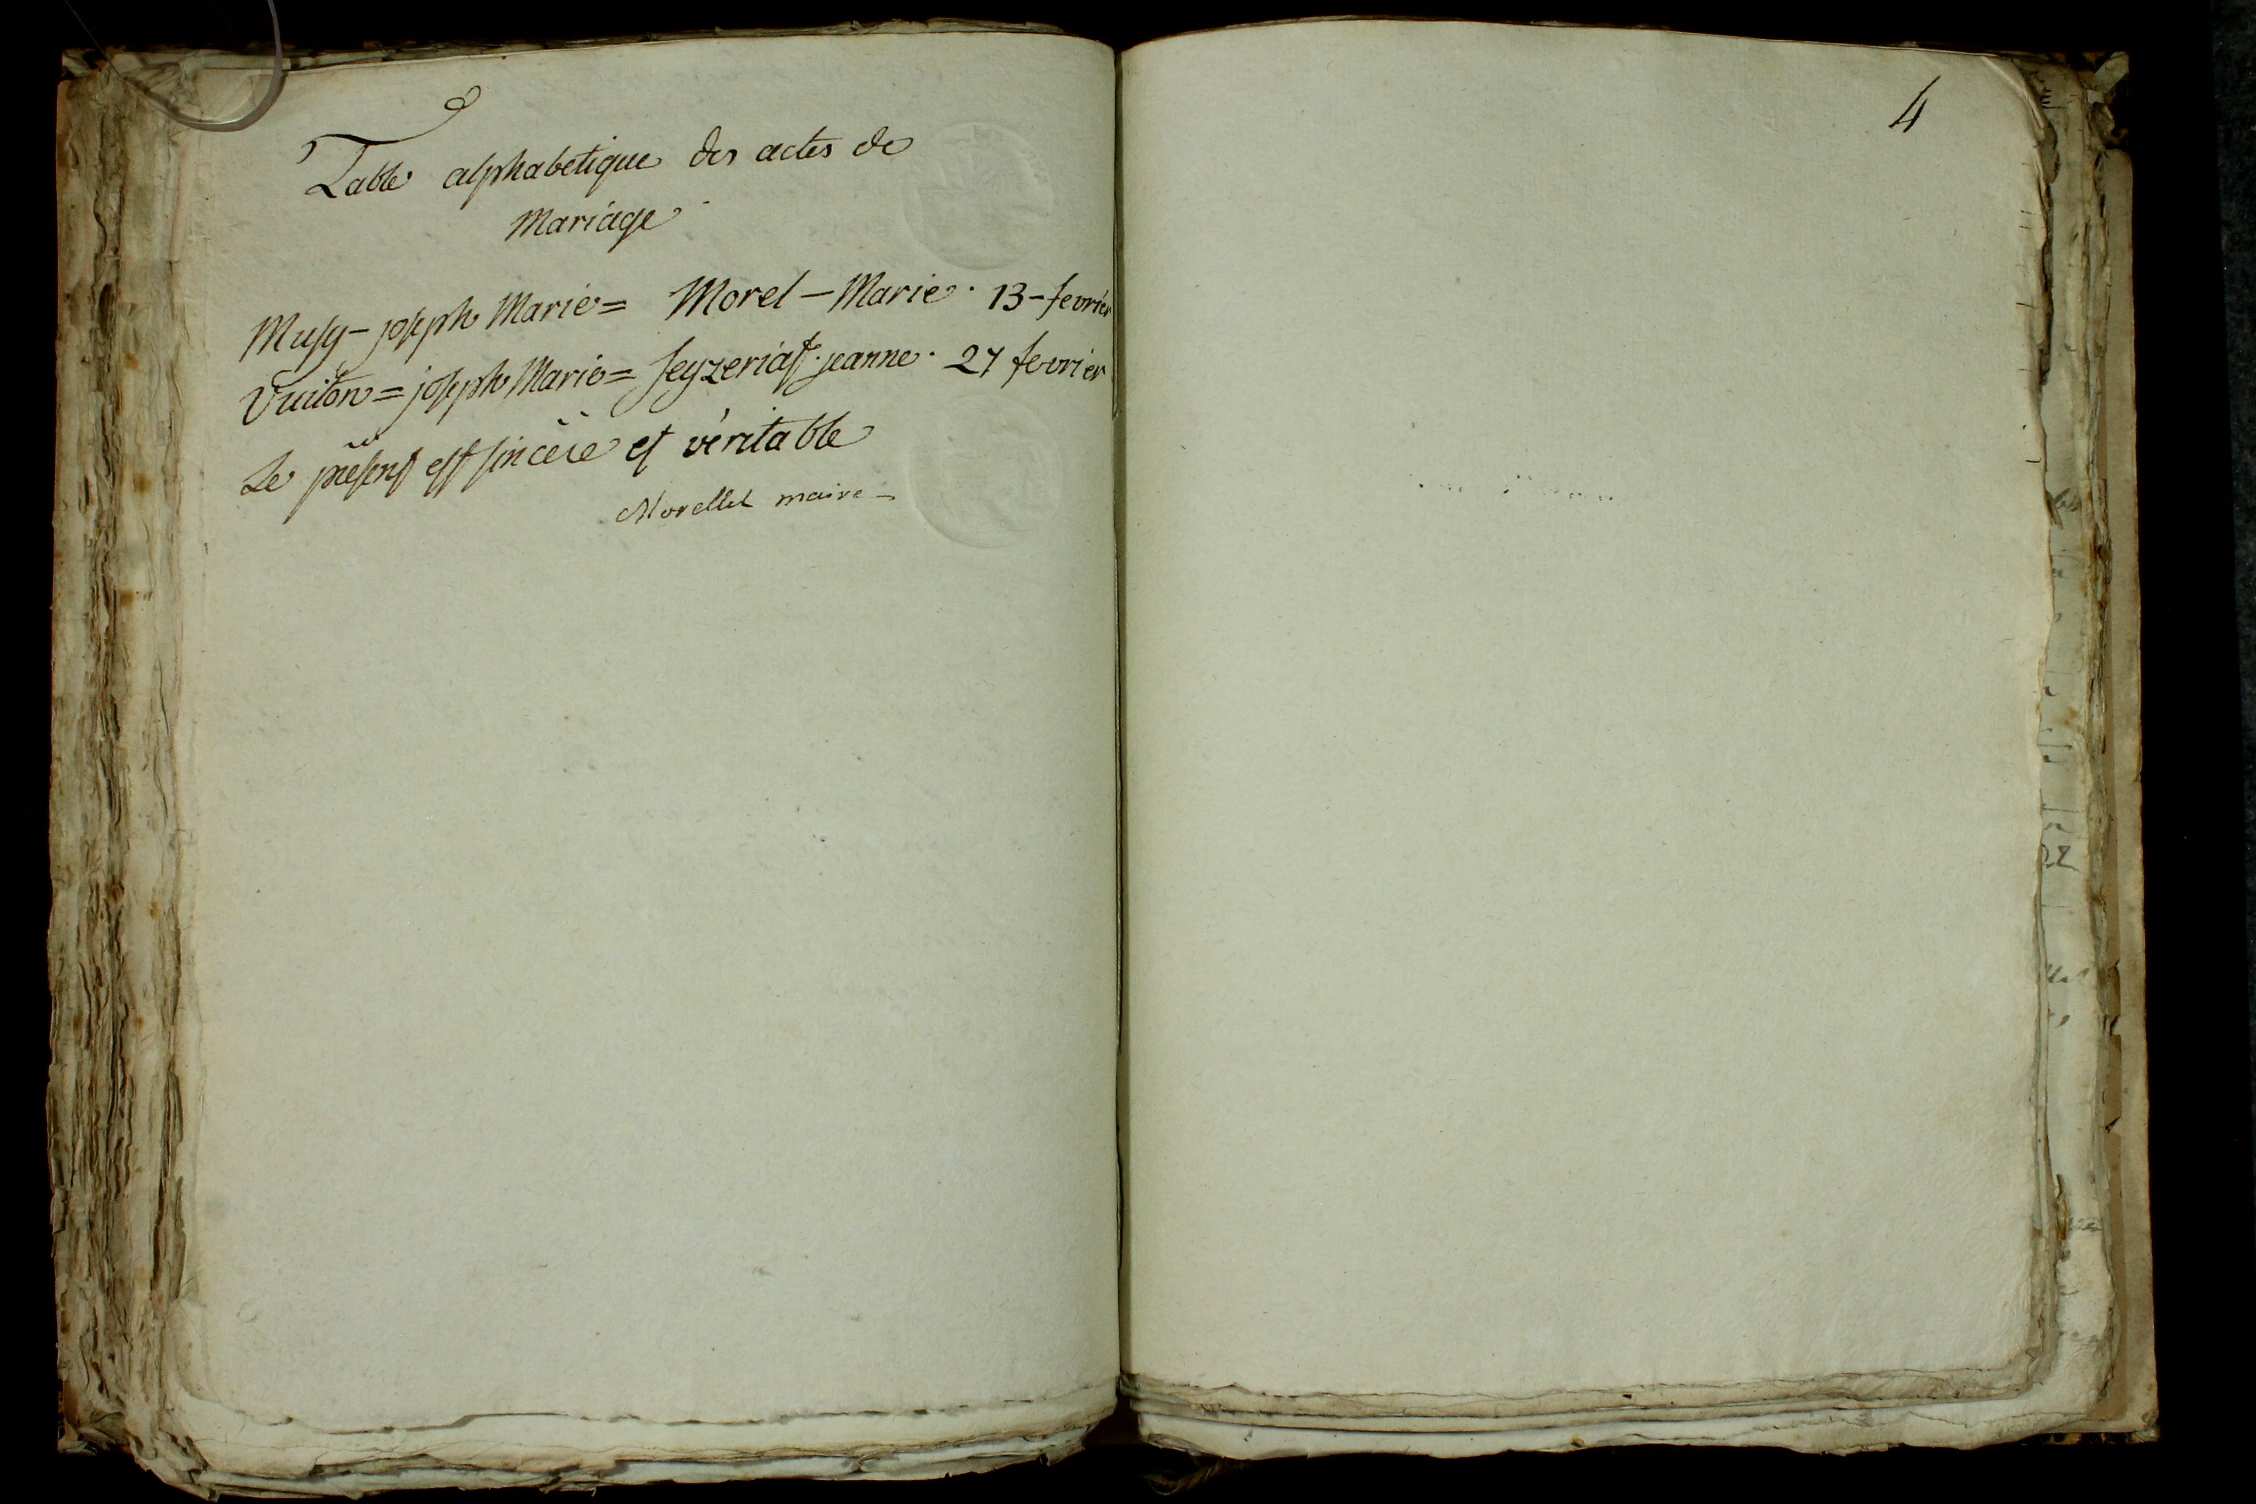 Table alphabetique des actes de
Mariage
Musy - joseph Marie = Morel - Marie . 13 - fevrier
Vuiton = joseph Marie = Seyzeriat . jeanne . 27 fevrier
Le présent est sincère et véritable
Morellet maire
4